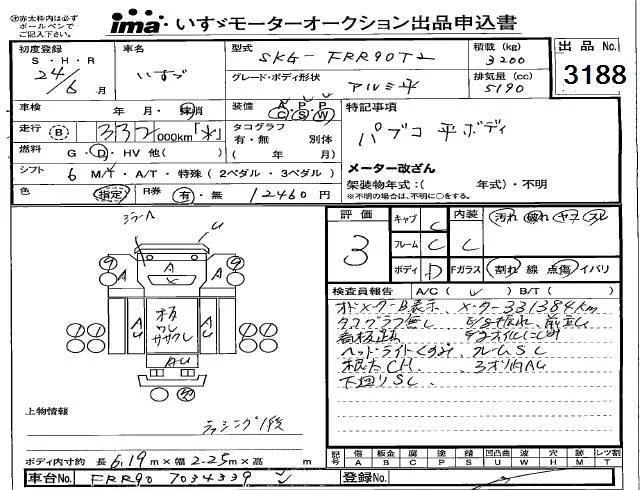 ※赤太枠内は必ず
ボールペンで
ご記入下さい。
ima いすゞモーターオークション出品申込書
初度登録 S・H・R 24/6月
車名 いすゞ
型式 SKG-FRR90T2
グレード・ボディ形状 アルミ平
積載(kg) 3200
排気量(cc) 5190
出品No. 3188
車検 年・月・抹消
装備 A C P S P W
特記事項
パブコ 平ボディ
走行 B 332,000km
タコグラフ 有・無 別体 (年 月)
燃料 G・D・HV 他( )
シフト 6 M/T・A/T・特殊(2ペダル・3ペダル)
メーター改ざん
架装物年式:( 年式)・不明
※不明の場合は、不明に〇をする。
色 指定 R券 有・無 12460円
評価 3
キャブ C
フレーム C
ボディ D
内装 C 汚れ 破れ ヤニ スレ
Fガラス 割れ 線 点傷 イバリ
検査員報告 A/C( ✓ ) B/T( )
ミラーA
U
A
A
A
A
AU
板
ワレ
ササクレ
AU
AU
オドメーターB表示、メーター331384km
タコグラフ無し
看板跡
ヘッドライトくすみ、フレームSL
下廻りSL
上物情報
ラッシング1段
ボディ内寸約 長6.19m×幅2.25m×高 m
記号 傷 A 板金 B 腐 C 塗 P 錆 S 凹凸曲 U 波 W 穴 H 欠 M レツ割 T
車台No. FRR90 7034339
登録No.